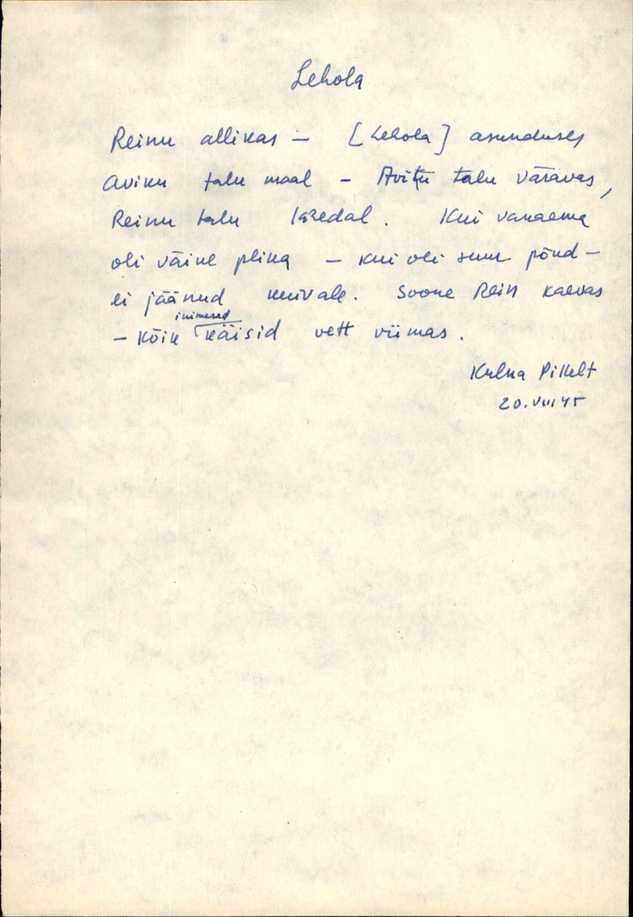 Lehola
Reinu allikas – [Lehola] asunduses
Aviku talu maal – talu väravas,
Reinu talu lähedal. Kui vanaema
oli väike plika – kui oli suur põud –
ei jäänud kuivale. Soone Rein kaevas
inimesed
– kõik käisid vett viimas.
Pikelt
20.VIII 45